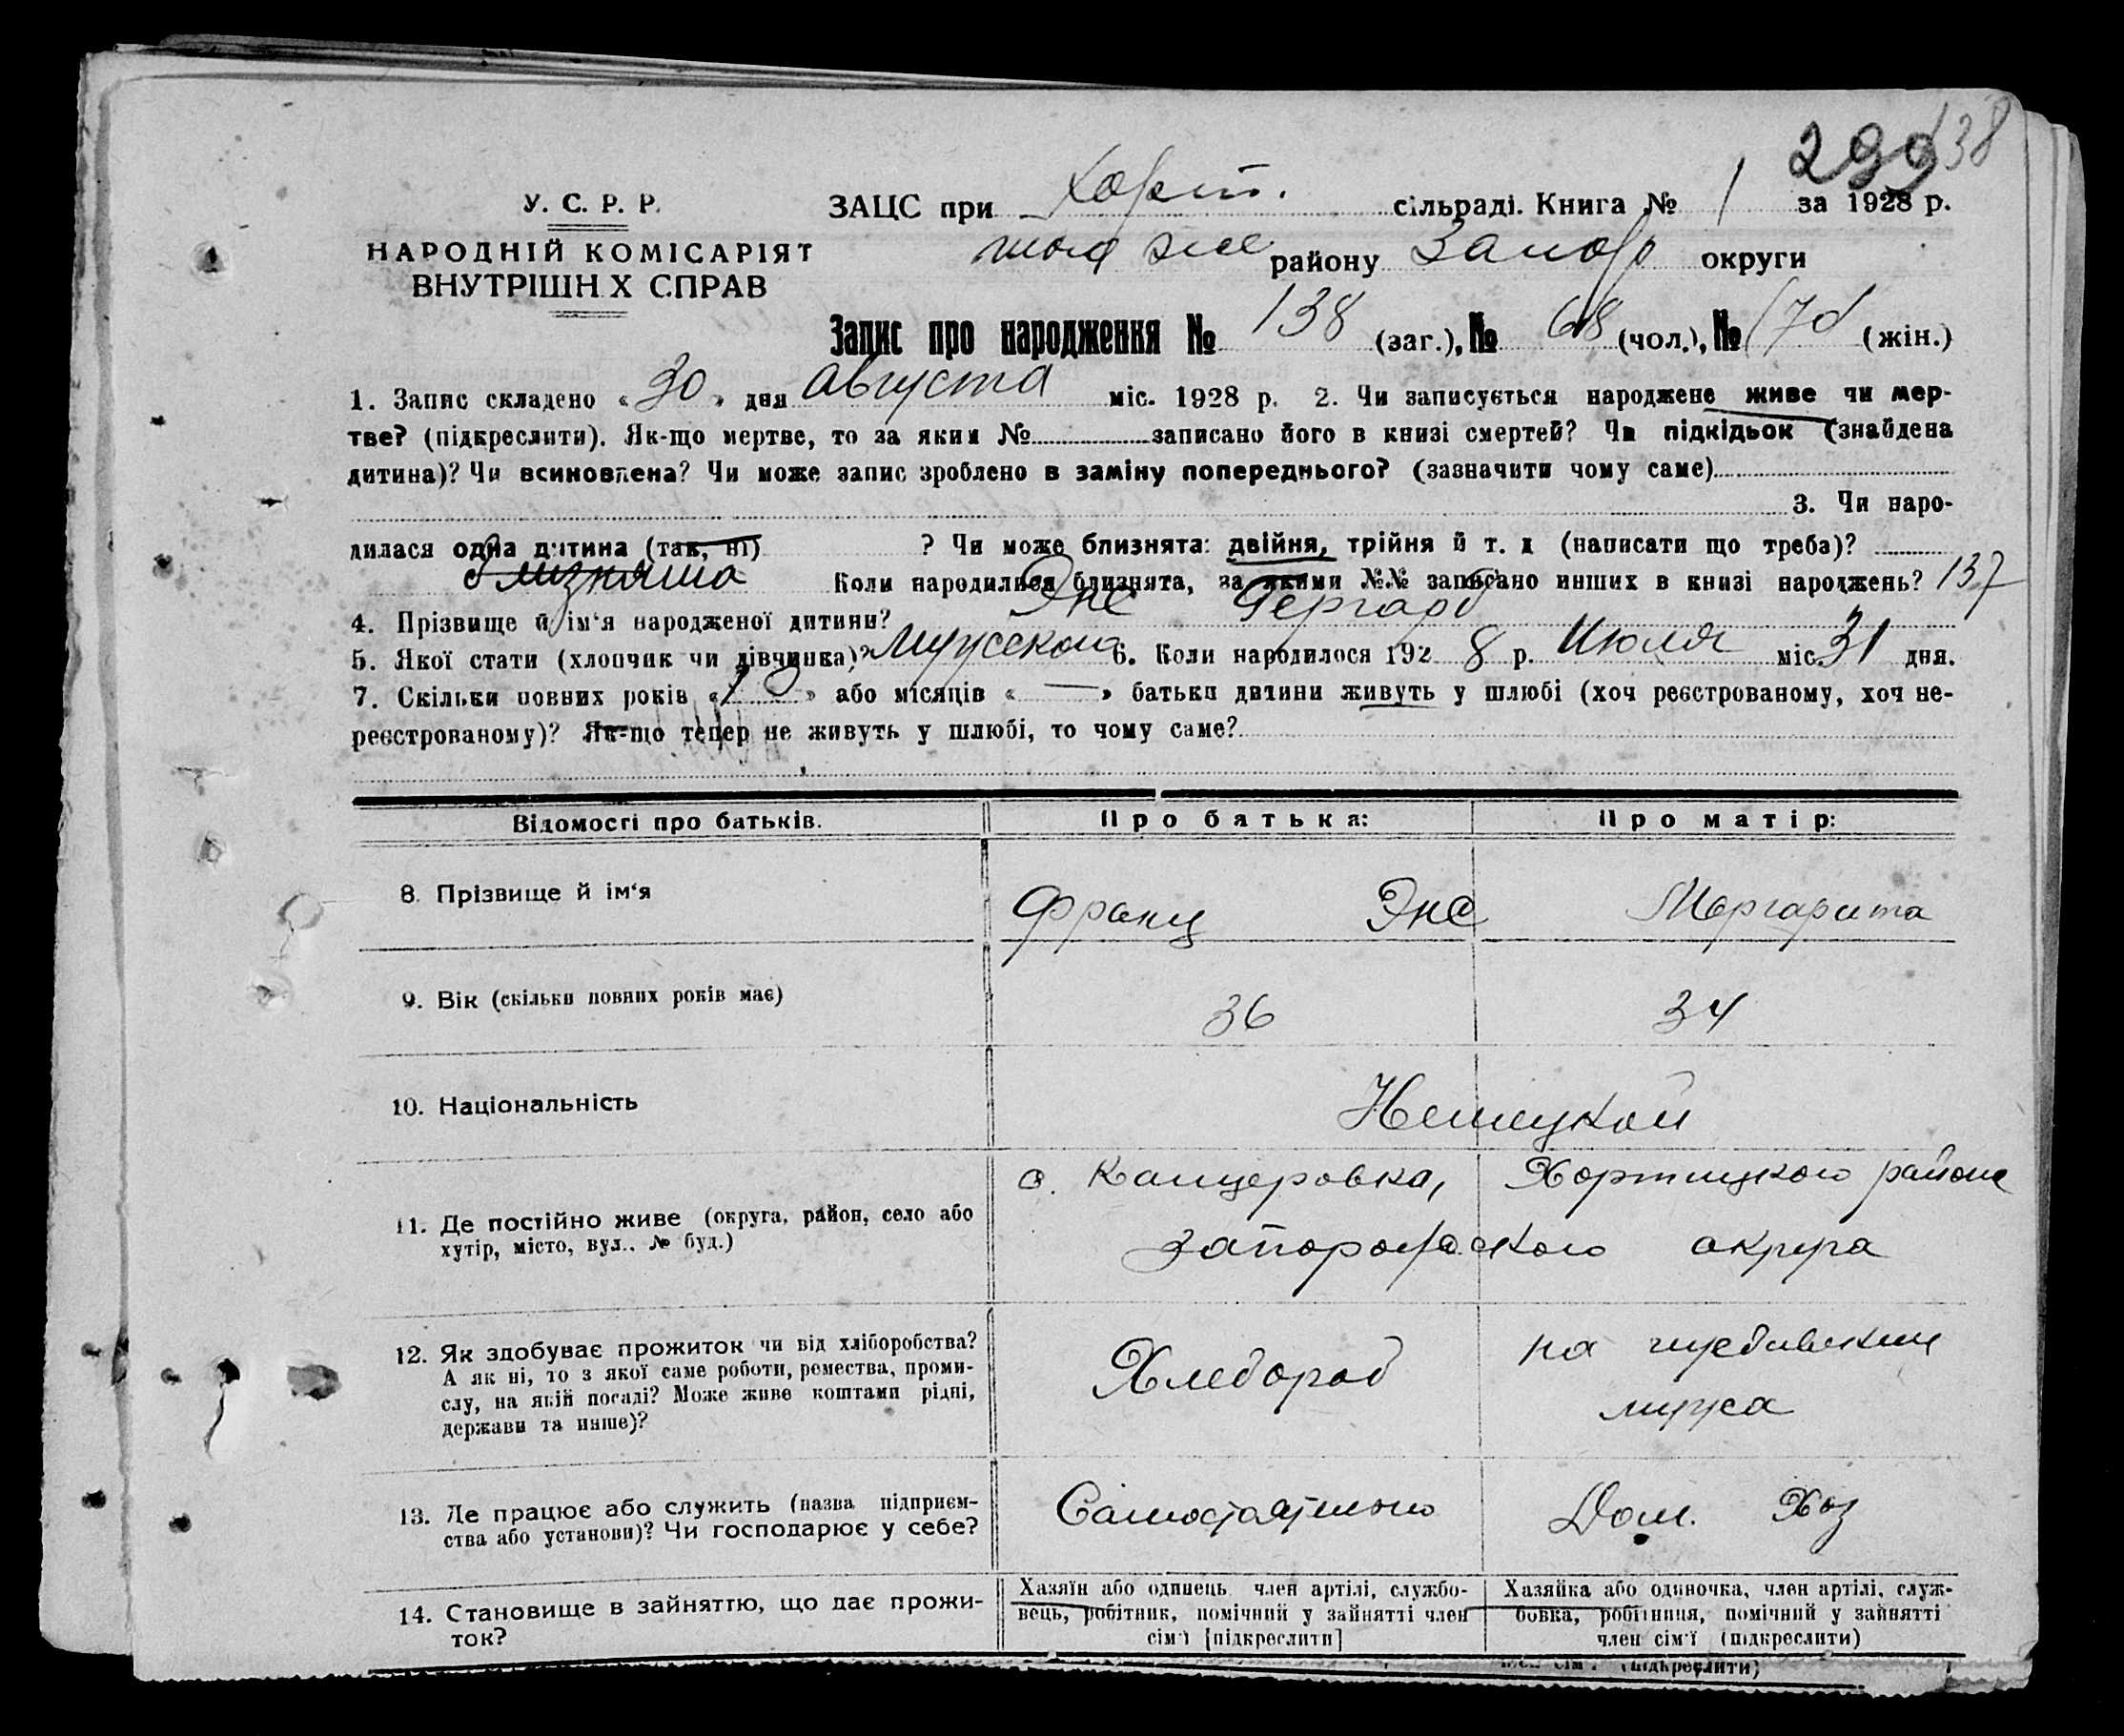 299 138
У. С. Р. Р.
НАРОДНІЙ КОМІСАРІЯТ
ВНУТРІШН Х СПРАВ
ЗАЦС при Хорт. сільраді. Книга № 1 за 1928 р.
того же району Запор округи
Запис про народження № 138 (заг.), № 68 (чол.), № 70 (жін.)
1. Запис складено « 30 » дня августа міс. 1928 р. 2. Чи записується народжене живе чи мер-
тве? (підкреслити). Як-що мертве, то за яким № записано його в книзі смертей? Чи підкідьок (знайдена
дитина)? Чи всиновлена? Чи може запис зроблено в заміну попереднього? (зазначити чому саме)
3. Чи наро-
дилася одна дитина (так, ні) ? Чи може близнята: двійня, трійня й т. д (написати що треба)?
близнята Коли народилися близнята, за якими №№ записано инших в книзі народжень? 137
4. Прізвище й ім'я народженої дитини? Энс Гергард
5. Якої стати (хлопчик чи дівчинка)? Мужского 6. Коли народилося 192 8 р. Июля міс. 31 дня.
7. Скільки повних років « » або місяців « — » батьки дитини живуть у шлюбі (хоч реєстрованому, хоч не-
реєстрованому)? Як-що тепер не живуть у шлюбі, то чому саме?
Відомості про батьків. Про батька: Про матір:
8. Прізвище й ім'я Франц Энс Маргарита
9. Вік (скільки повних років має) 36 34
10. Національність Немецкой
с. Канцеровка, Хортицкого района
11. Де постійно живе (округа, район, село або
хутір, місто, вул., № буд.) Запорожского округа
12. Як здобуває прожиток чи від хліборобства?
А як ні, то з якої саме роботи, ремества, проми-
слу, на якій посаді? Може живе коштами рідні,
держави та инше)?
Хлебороб на иждивении
мужа
13. Де працює або служить (назва підприєм-
ства або установи)? Чи господарює у себе?
Самостоятельно Дом. Хоз
14. Становище в зайняттю, що дає прожи-
ток?
Хазяїн або одинець член артілі, службо-
вець, робітник, помічний у зайнятті член
сім'ї [підкреслити]
Хазяйка або одиночка, член артілі, служ-
бовка, робітниця, помічний у зайнятті
член сім'ї (підкреслити)
(підкреслити)